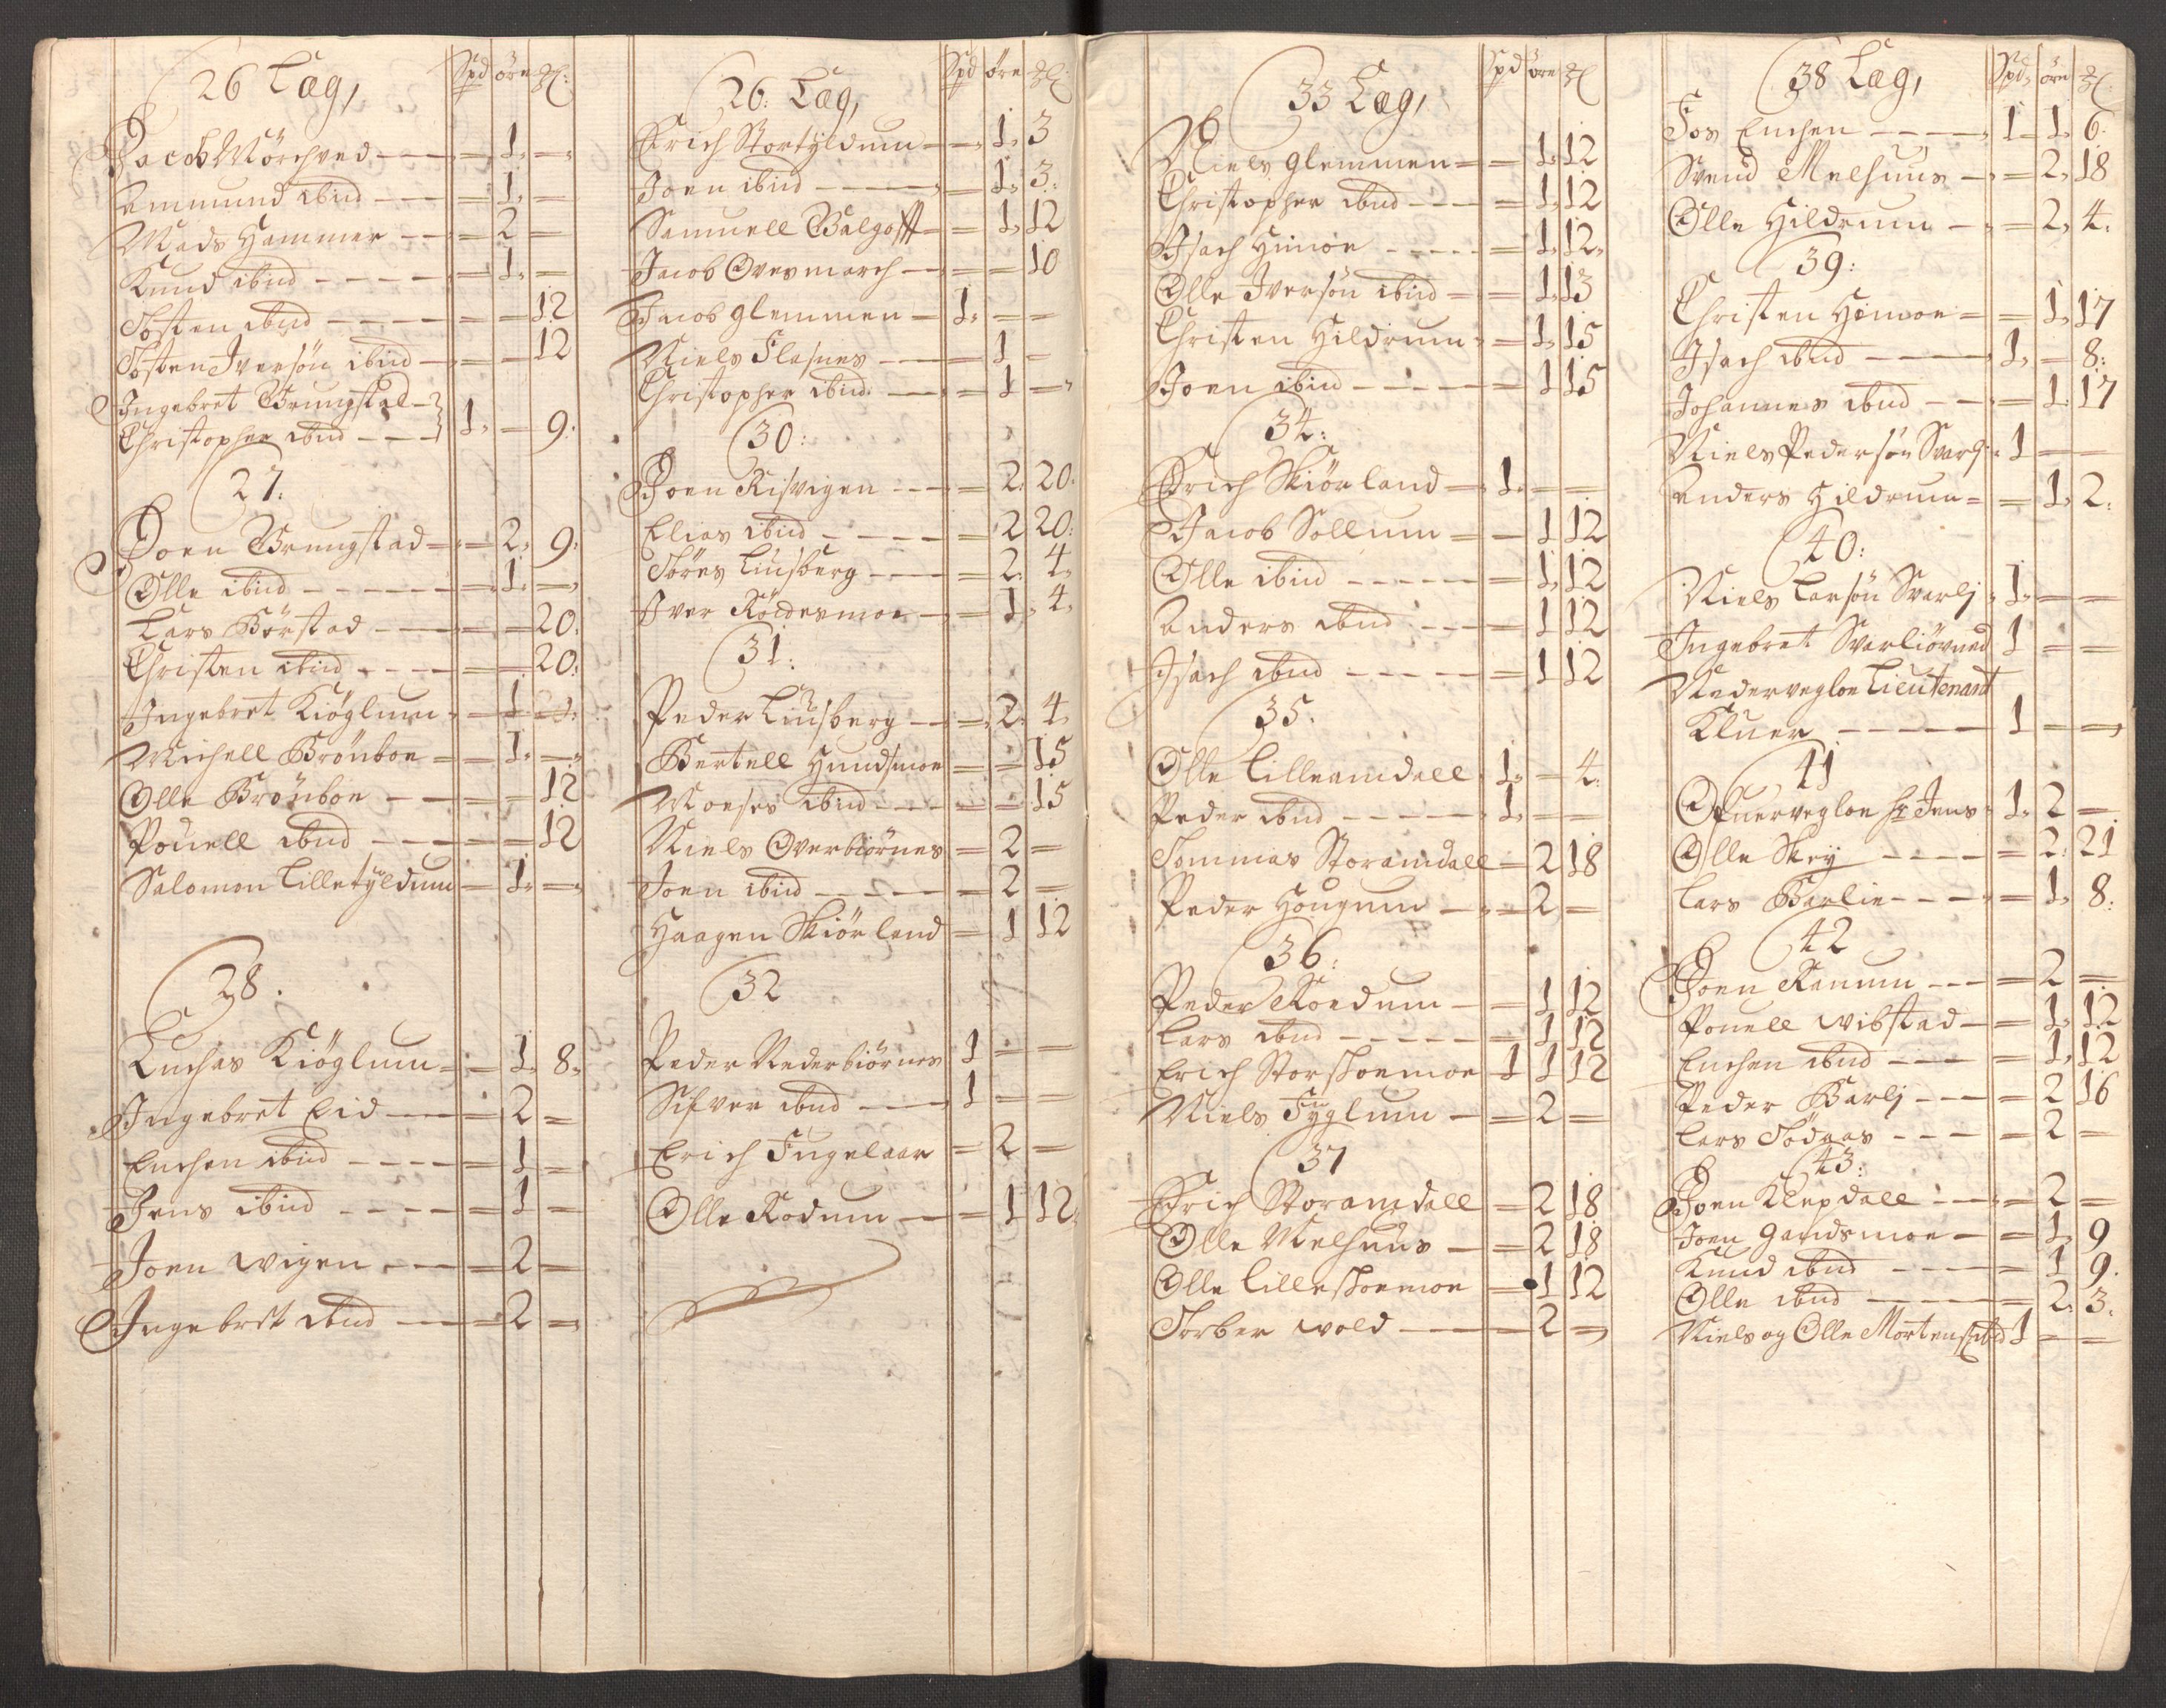 26 Læg, Spd øre
Jacob Mörchved — = 1. =
Ammund ibid — = 1. =
Mads Hammer — = 2 =
Knud ibid — = 1. =
Tosten ibid — = = 12
Tosten Iversøn ibid — = = 12
Ingebret Grungstad —
Christopher ibid — 1. = 9.
27.
Joen Grungstad — = 2. 9.
Olle ibid — = 1. =
Lars Börstad — = = 20.
Christen ibid — = = 20.
Ingebret Kiöglum = 1 =
Michell Brönboe = 1. =
Olle Brönboe — = = 12
Pouell ibid — = = 12
Salomon Lilletyldum = 1. =
28.
Luchas Kiöglum = 1. 8.
Ingebret Eid — = 2 =
Enchen ibid — = 1 =
Jens ibid — = 1 =
Joen Wigen — = 2 =
Ingebret ibid — = 2 =
26. Læg, Spd øre
Erich Stortyldum = 1. 3
Joen ibid — = 1. 3.
Samuell Galgoft = 1. 12
Jacob Overmarch — = = 10
Jacob Glemmen — 1. = =
Niels Flasnes — = 1 =
Christopher ibid — = 1 =
30.
Joen Risvigen — = 2. 20.
Elias ibid — = 2 20.
Törres Liusberg — = 2. 4.
Iver Röddesmoe — = 1. 4.
31.
Peder Liusberg — = 2. 4.
Bertell Hundsmoe = = 15
Moeses ibid — = = 15
Niels Overbiörnes = 2 =
Joen ibid — = 2 =
Haagen Skiörland = 1 12
32
Peder Nederbiörnes 1 = =
Sifver ibid — 1 = =
Erich Fugelaar = 2 =
Olle Rodum — = 1 12.
33 Læg, Spd øre
Niels Glemmen = = 1. 12
Christopher ibid — = 1. 12
Isach Himoe — = 1. 12.
Olle Iversön ibid = = 1. 13
Christen Hildrum = 1. 15
Joen ibid — = 1 15
34.
Erich Skiörland — 1. = =
Jacob Sollum = = 1 12
Olle ibid — = 1. 12
Anders ibid — = 1 12
Isach ibid — = 1 12
35.
Olle Lilleamdall 1. = 4.
Peder ibid — 1. = =
Tommas Storamdall = 2 18
Peder Hougum — = 2 =
36.
Peder Roedum — = 1 12
Lars ibid — = 1 12
Erich Storskoemoe 1 1 12
Niels Fyglum — = 2 =
37
Erich Storamdall = 2 18
Olle Melhuus — = 2 18
Olle Lilleskoemoe = 1 12
Torber Wold — = 2 =
38 Læg, Spd. øre
Fos Enchen — 1 = 1. 6.
Svend Melhuus — = 2. 18
Olle Hildrum — = 2. 4.
39.
Christen Himoe = = 1. 17
Isach ibid — 1. = 8.
Johannes ibid — = 1. 17
Niels Pedersön Svarlj. 1 = =
Anders Hildrum = = 1. 2.
40.
Niels Larsön Svarlj 1. = =
Ingebret Svarliöved 1 = =
Nedervegloe Lieutenant
Kluer — 1 = =
41
Ofuervegloe Hr Jens 1. 2 =
Olle Skey — = 2. 21
Lars Barlie — = 1. 8.
42
Joen Ranum — = 2 =
Pouell Wibstad — = 1. 12
Enchen ibid — = 1. 12
Peder Barlj — = 2 16
Lars Tödaas — = 2 =
43.
Joen Klepdall — = 2 =
Joen Gandsmoe — = 1. 9
Knud ibid — = 1 9.
Olle ibid — = 2. 3.
Niels og Olle Mortens. ibid 1 = =